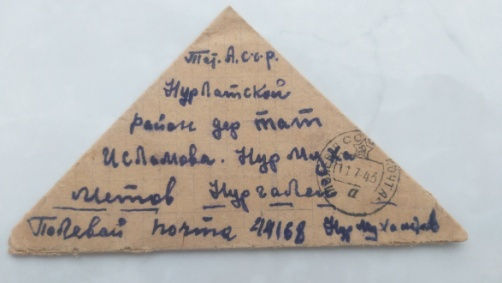 Тат. А.с.с.р.
Нурлатской
район дер Тат
Исламова. Нур Муха
метов Нургалей
Полевай почта 44168 Нур Мухаметов
11.7.43
ПОЧТА
а